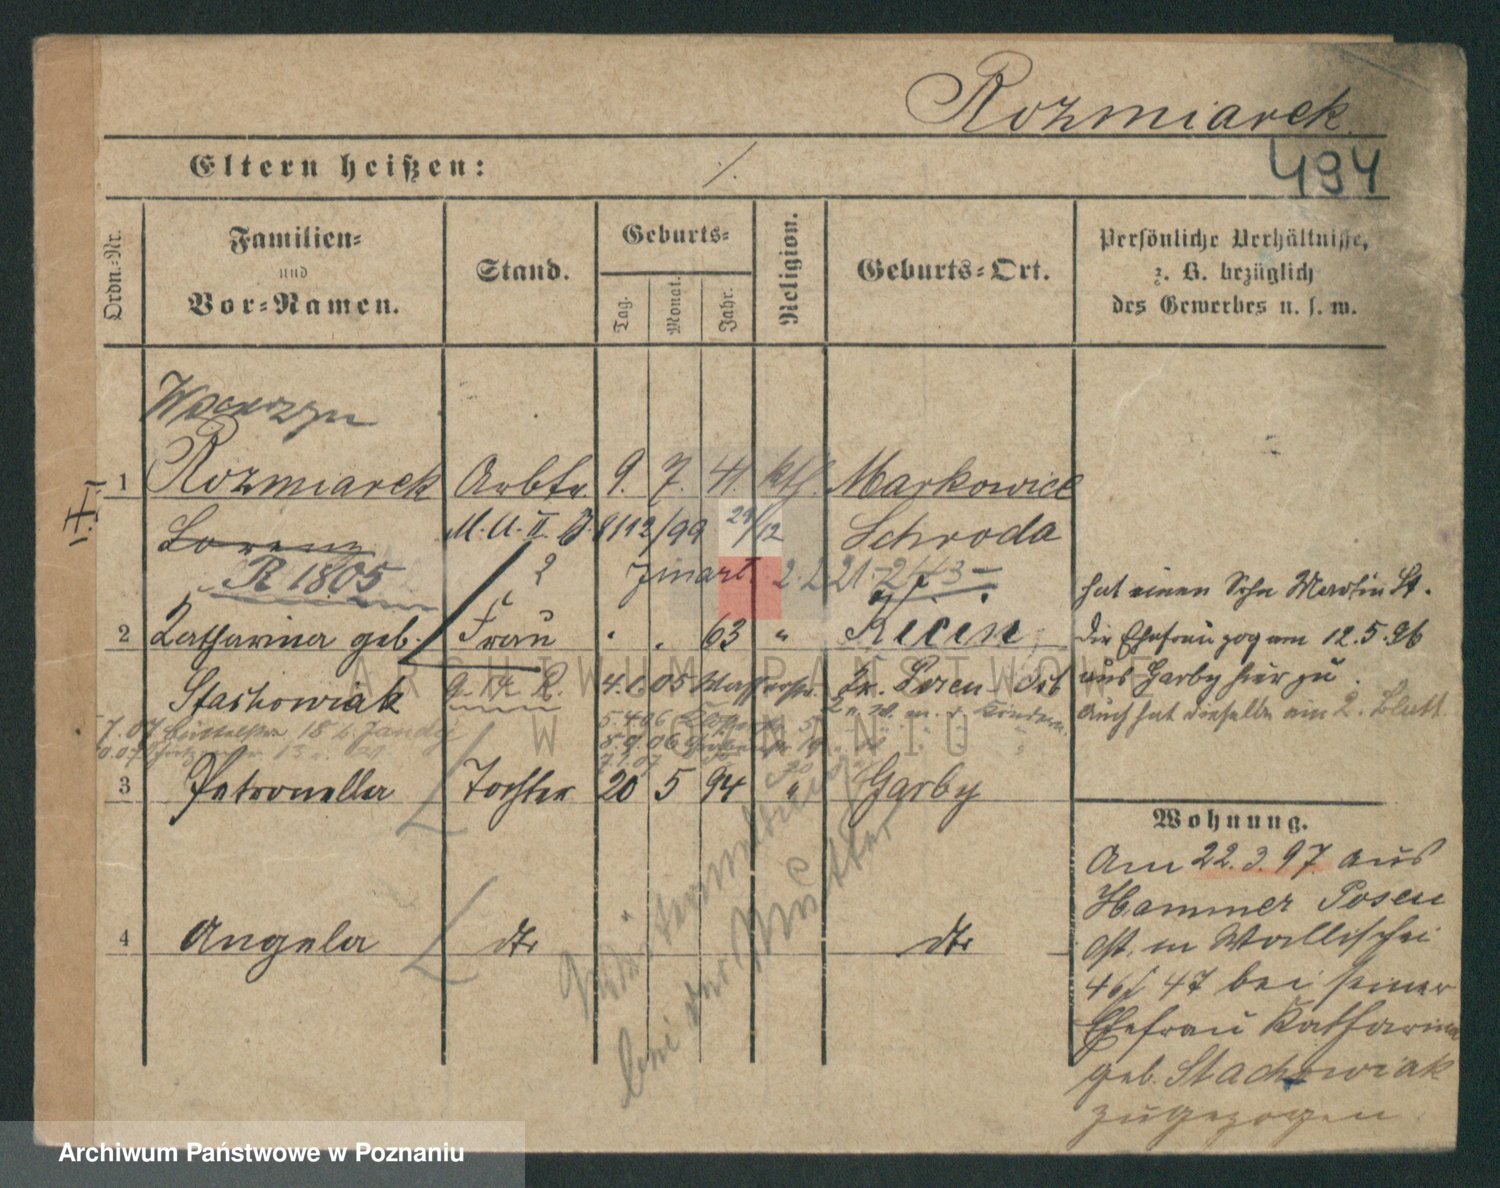 Rozmiarek
Eltern heißen: ./.
494
Ordn.-Nr.
Familien-
und
Vor-Namen.
Stand.
Geburts-
Tag. Monat. Jahr.
Religion.
Geburts-Ort.
Persönliche Verhältnisse,
z. B. bezüglich
des Gewerbes u. s. w.
Wawrzyn
1 Rozmiarek Arbtr. 9. 7. 41. kth. Markowice
Lorenz 8/12/99 29/12 Schroda
R 1805
hat einen Sohn Martin St.
2 Katharina geb. Frau 63 " Kicin
die Ehefrau zog am 12.5.96
Stachowiak 4.1.05
aus Garby hier zu.
auch hat dieselbe ein 2. Blatt
3 Petronella Tochter 20 5 94 " Garby
Wohnung.
Am 22.3.97. aus
Hammer Posen
Ost. in Wallischei
46/47 bei seiner
4 Angela dto dto
Ehefrau Katharina
geb. Stachowiak
zugezogen
bei der Mutter
ARCHIWUM PAŃSTWOWE
W POZNANIU
Archiwum Państwowe w Poznaniu